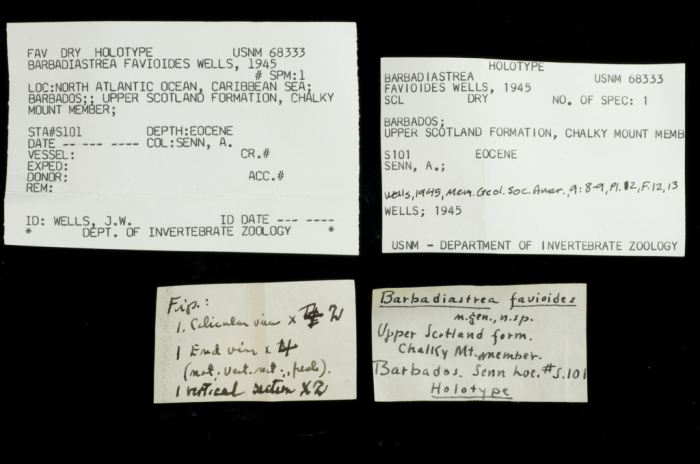 FAV DRY HOLOTYPE USNM 68333
BARBADIASTREA FAVIOIDES WELLS, 1945
# SPM:1
LOC:NORTH ATLANTIC OCEAN, CARIBBEAN SEA;
BARBADOS;; UPPER SCOTLAND FORMATION, CHALKY
MOUNT MEMBER;
STA#S101 DEPTH:EOCENE
DATE -- --- ---- COL:SENN, A.
VESSEL: CR.#
EXPED:
DONOR: ACC.#
REM:
ID: WELLS, J.W. ID DATE --- ----
* DEPT. OF INVERTEBRATE ZOOLOGY *
HOLOTYPE
BARBADIASTREA USNM 68333
FAVIOIDES WELLS, 1945
SCL DRY NO. OF SPEC: 1
BARBADOS;
UPPER SCOTLAND FORMATION, CHALKY MOUNT MEMB
S101 EOCENE
SENN, A.;
Wells, 1945, Mem. Geol. Soc. Amer., 9: 8-9, Pl. 2, F. 12, 13
WELLS; 1945
USNM - DEPARTMENT OF INVERTEBRATE ZOOLOGY
Fip.:
1. Calicular view x 2
1 End view x
(nat. vert. sect.,).
1 vertical section X2
Barbadiastrea favioides
n.gen., n.sp.
Upper Scotland form.
Chalky Mt. member.
Barbados. Senn Loc. #S.101
Holotype